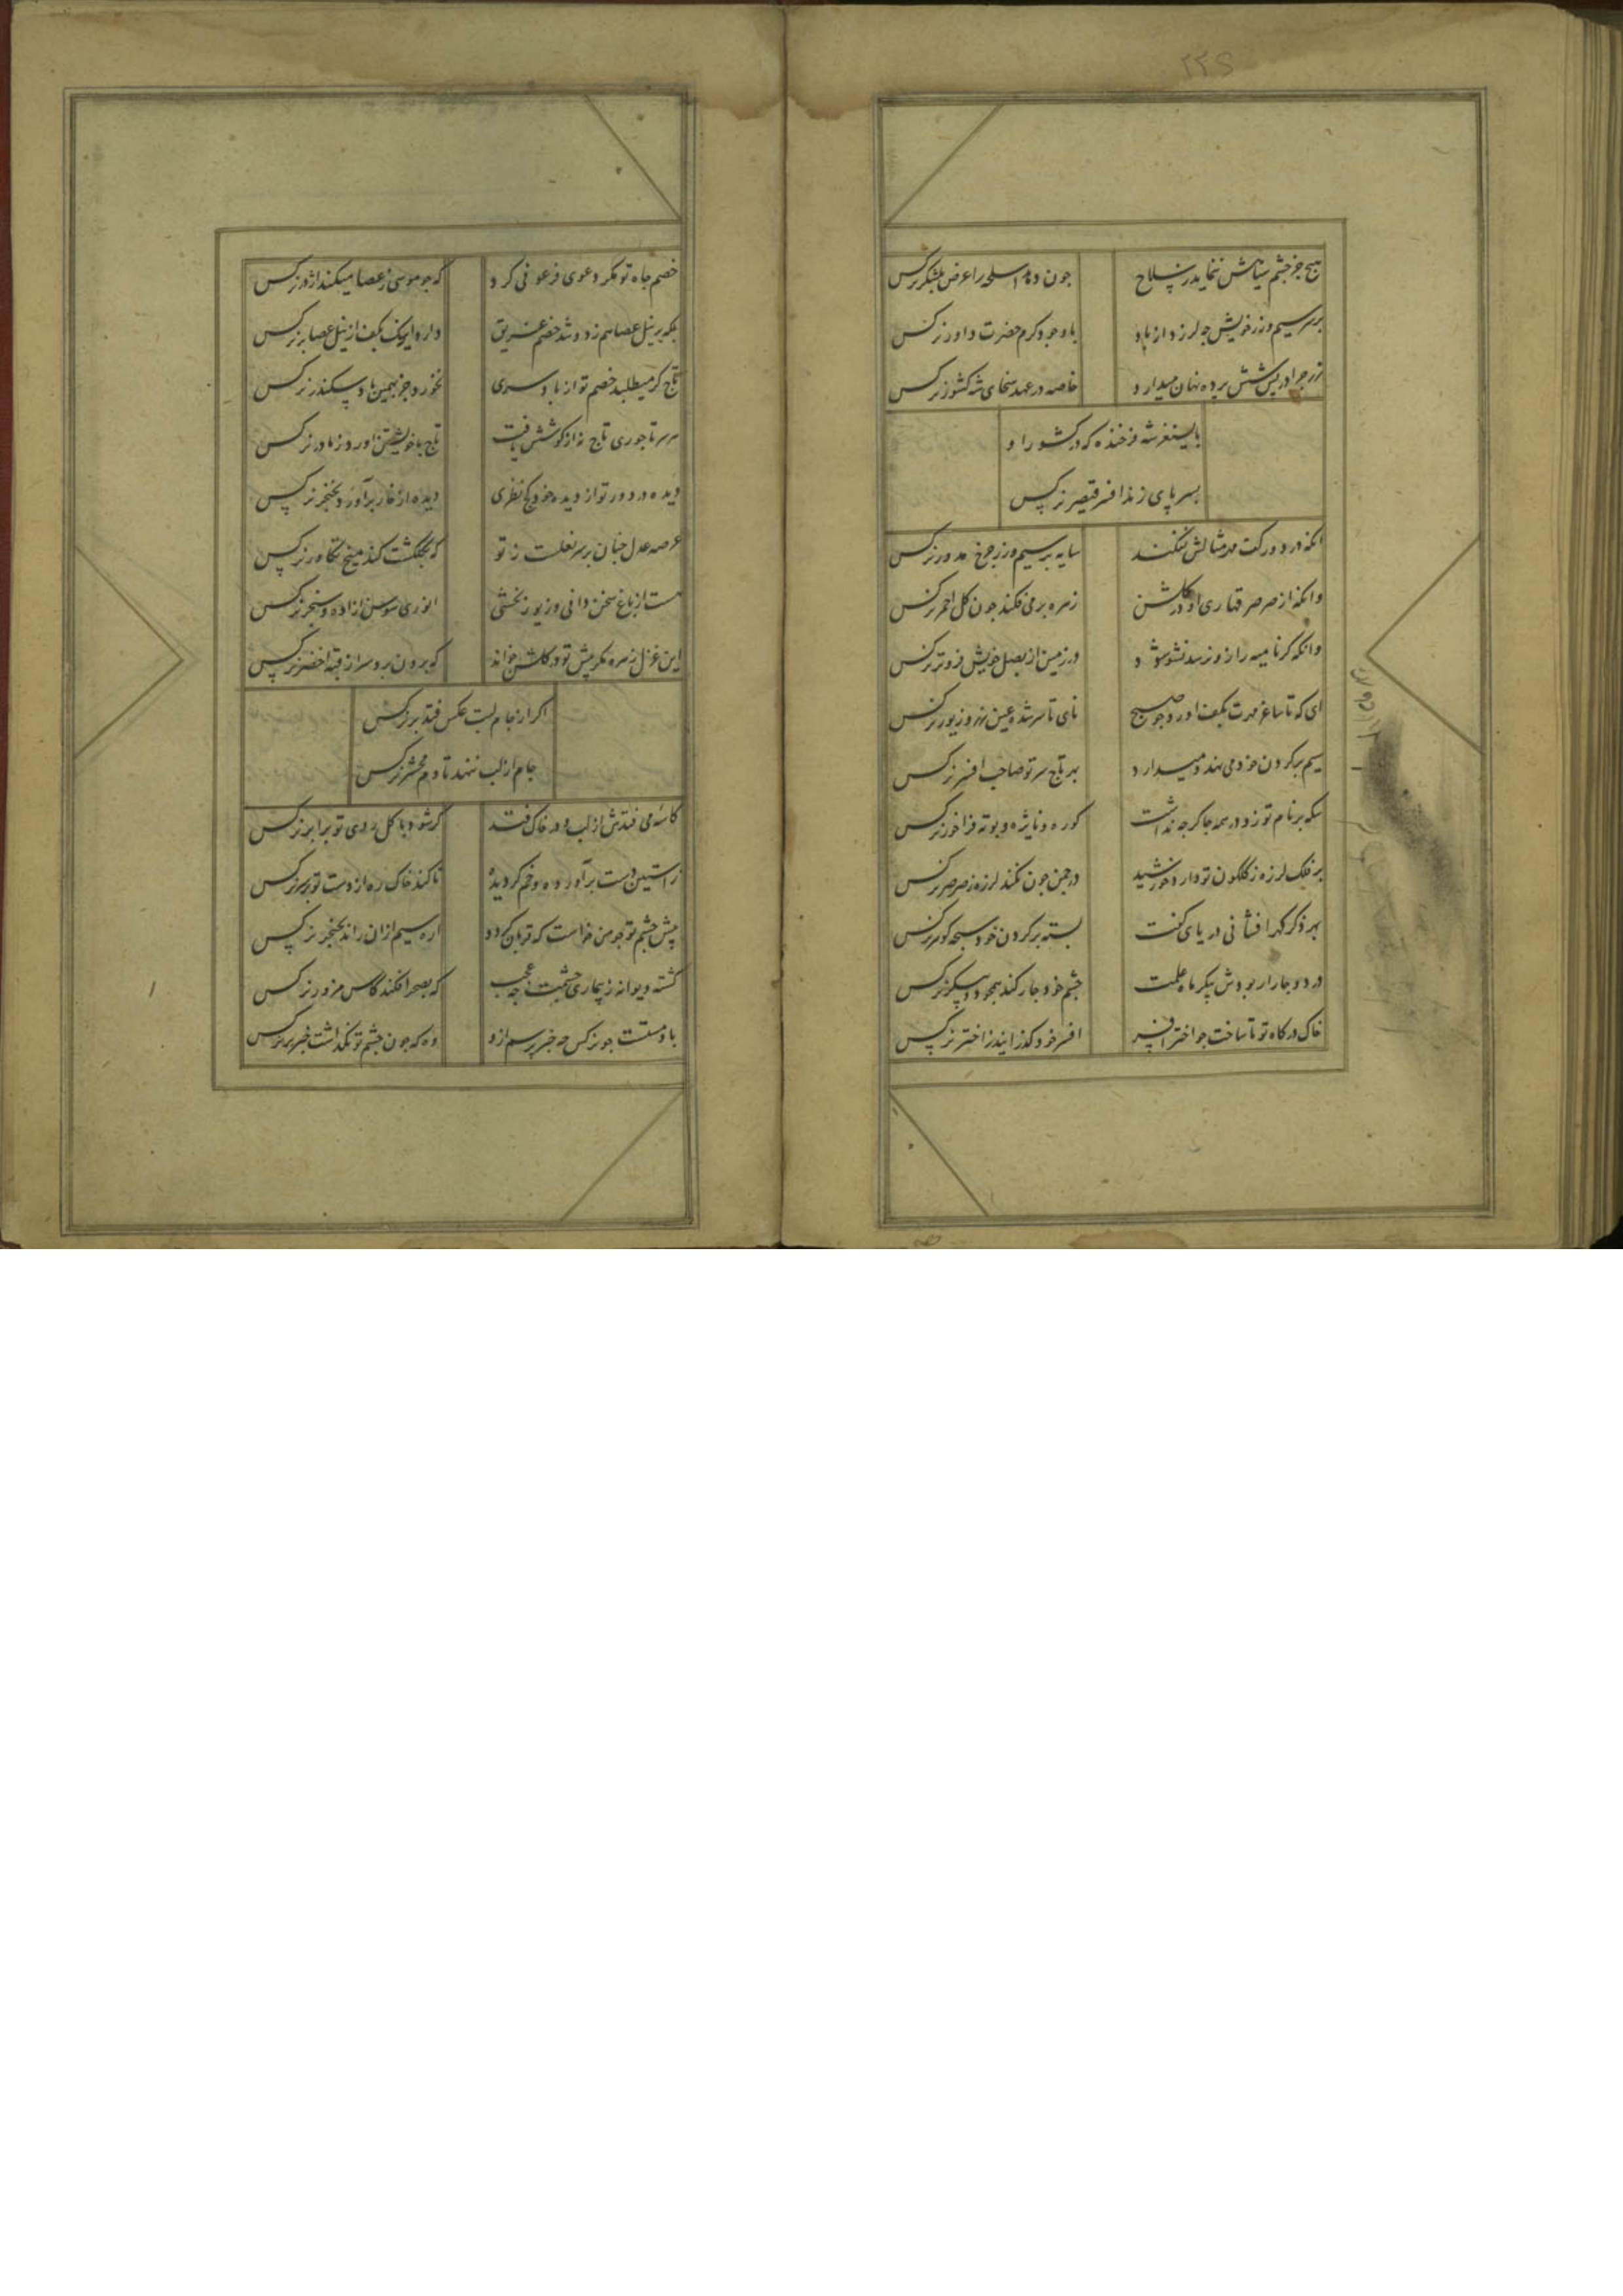 ۲۲۵
هیچ جز چشم سنانش ننماید ز سلاح جون دهد اسلحه را عرض بلشکر نرکس
بر سر سیم و زر خویش جه لرزد از باد با وجود کرم حضرت داور نرکس
زر جرا در پس شش برده نهان میدارد خاصه در عهد سخای شه کشور نرکس
بایسنغر شه فرخنده که در کشور او
بسر پای زند افسر قیصر نرکس
انکه در دور کت مه مثالش نکند سایه بر سیم و زر جرخ مدور نرکس
وانکه از صرصر قهاری او در کلشن زهره بر می فکند جون کل احمر نرکس
وانکه کر نامیه را زو نرسد نشو شود در زمین از بصل خویش فروتر نرکس
ای که تا ساغر مهرت بکف اورد جو صبح نای تا سر شده عین زر و زیور نرکس
سیم بر کردن خود می نهد و میدارد بد تاج سر تو صاحب افسر نرکس
سکه بر نام تو زد در همه جا کرجه نداشت کوره و نایژه و بوته فراخور نرکس
بر فلک لرزه ز کلکون تو دارد خورشید در جمن جون نکند لرزه ز صرصر نرکس
بهر ذکر کهر افشانی دریای کفت بسته بر کردن خود سبحه کوهر نرکس
در دو جار ار بودش پیکر ماه علمت جشم خود جار کند همجو دو پیکر نرکس
خاک درکاه تو تا ساخت جو اختر افسر افسر خود کذرانید ز اختر نرکس
خصم جاه تو مکر دعوی فرعونی کرد که جو موسی ز عصا میکند اژدر نرکس
بلکه بر نیل عصا هم زد و شد خصم غریق دارد اینک بکف از نیل عصا بر نرکس
تاج کر میطلبد خصم تو از باد سری نخورد جز بهمین باد سکندر نرکس
هر سر تاجوری تاج نه از کوشش یافت تاج با خویشتن اورد ز مادر نرکس
دیده در دور تو از دیده خود کج نظری دیده از غار برآورد بخنجر نرکس
عرصه عدل جنان بر سر نعلست ز تو که بکلکشت کند میخ تکاور نرکس
هست از باغ سخن دانی و زیور بخشی انوری سوسن ازاده و سنجر نرکس
این غزل زهره مکر پیش تو در کلشن خواند که برون برد سر از قبه اخضر نرکس
اکر از جام لبت عکس فتد بر نرکس
جام از لب ننهد تا دم محشر نرکس
کاسه می فتدش از لب و در خاک فتد کر شود با کل روی تو برابر نرکس
ز استین دست برآورده و خم کردیده تا کند خاک ره از دست تو بر سر نرکس
پیش جشم تو جو من خواست که قربان کردد اره سیم ازان راند بخنجر نرکس
کشته دیوانه ز بیماری جشمت جه عجب که بصحرا فکند کاس مزور نرکس
باد مستست جو نرکس جه خبر پرسم ازو وه که جون جشم تو نکذاشت خبر بر نرکس